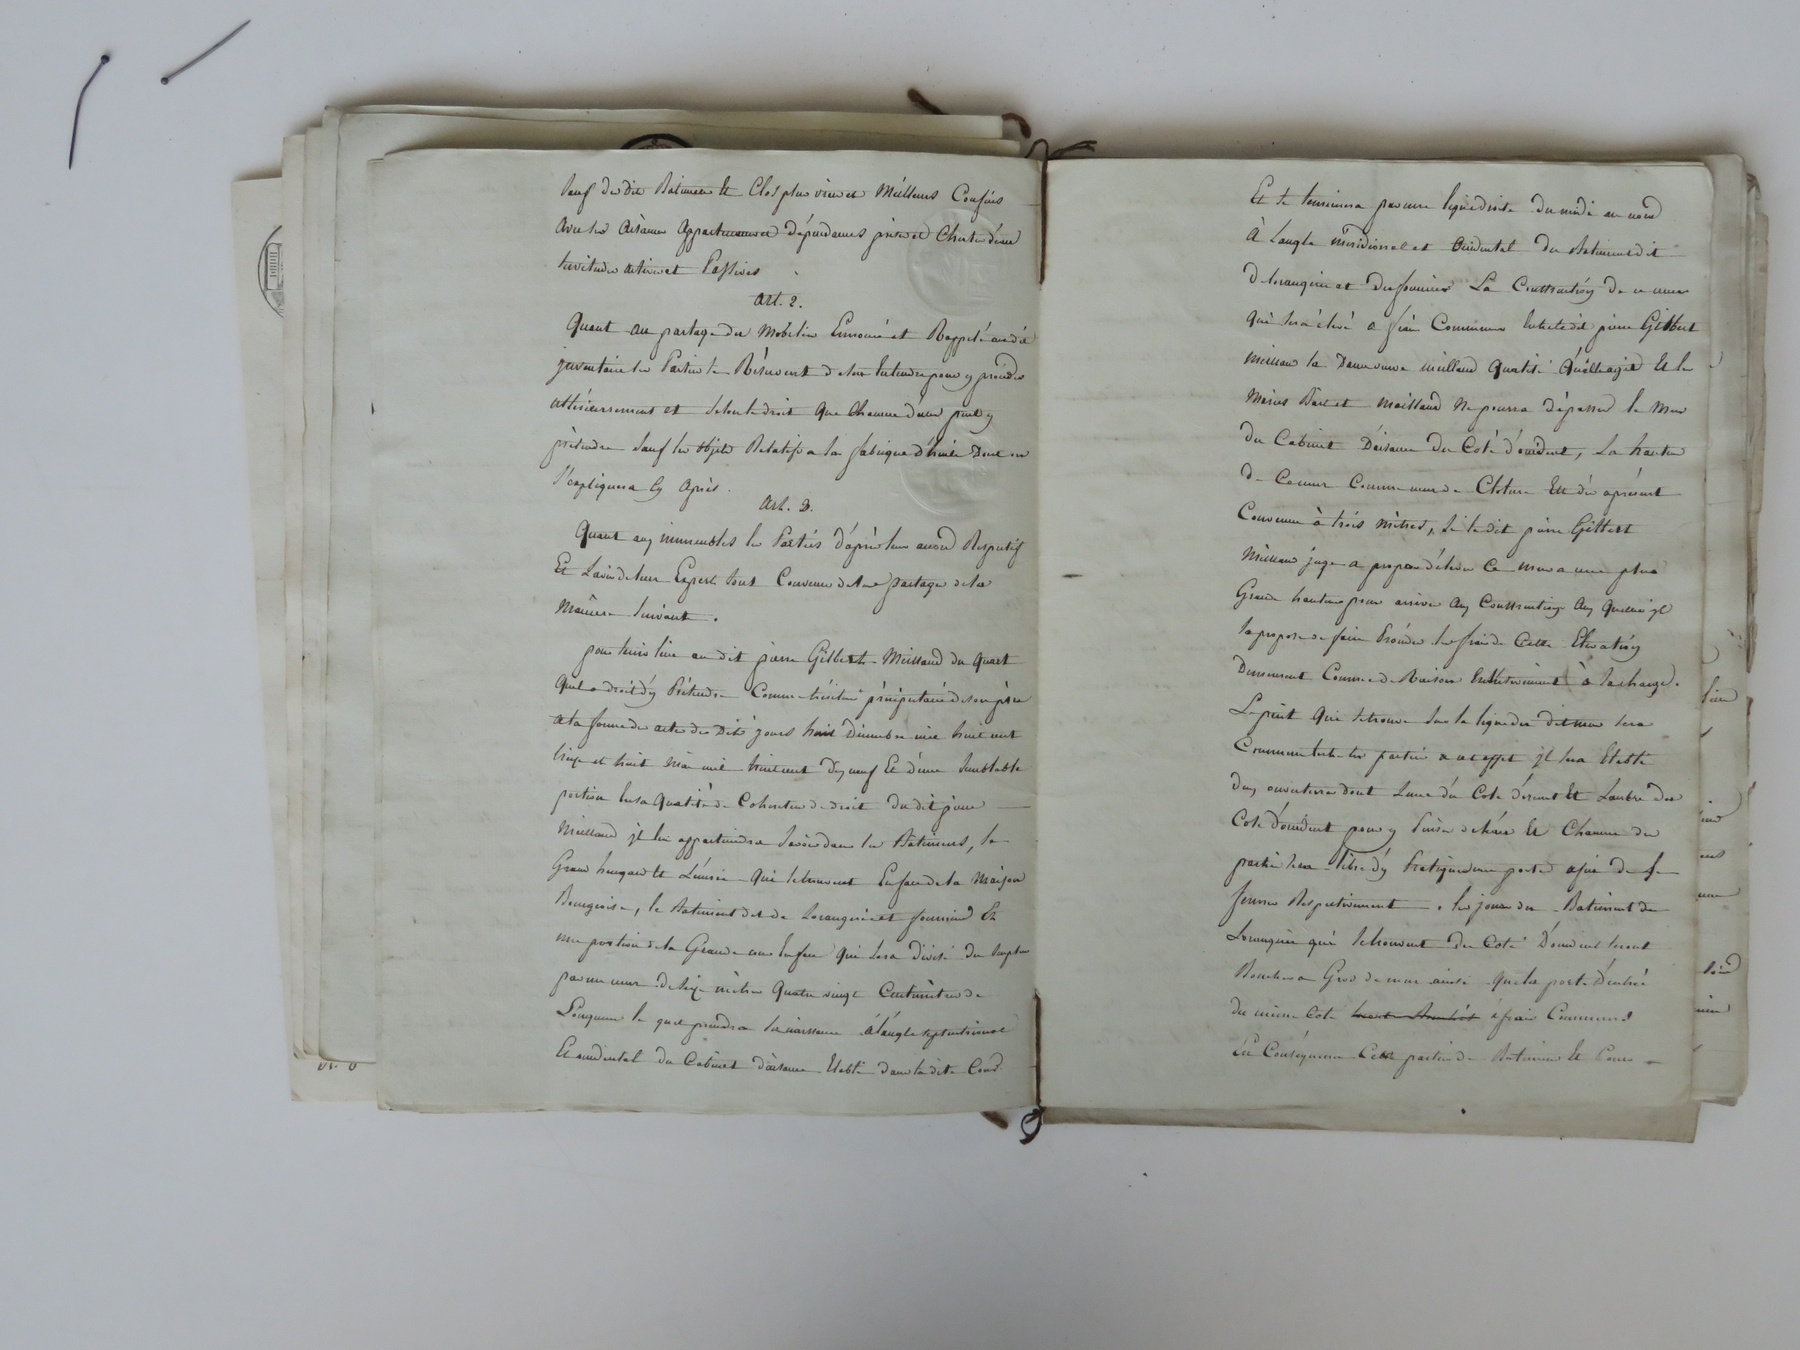 Sauf du dit Batiment et Clos plus vieux et Meilleurs Confins
Avec les aisances appartenances dépendances prises et Chutes d'eau
servitudes actives et Passives
Art. 2.
Quant au partage du Mobilier Enoncé et Rappelé au dit
inventaire les Parties se Réservent de s'en entendre pour y procéder
ultérieurement et selon le droit que Chacune d'elle peut y
prétendre sauf les objets Relatifs a la fabrique d'huile Dont on
s'expliquera Cy Après.
Art. 3.
Quant aux immeubles les Parties d'après leur accord Respectif
Et L'avis de leur Expert Sont Convenus de les partager de la
Manière Suivante.
pour tenir lieu au dit pierre Gilbert Meilland du Quart
Quil a droit d'y Prétendre Comme héritier préciputaire de son père
a la forme de acte du Dit jours huit Décembre mil huit cent
et huit mai mil huit cent Dix neuf Et d'une Semblable
portion En sa Qualité de Cohéritier de droit du dit pierre
Meilland il lui appartiendra Savoir dans les Batiments, le
Grand hangard et L'écurie qui se trouvent En face de la Maison
Bourgeoise, le Batiment dit de Lorangerie et fournier Et
une portion de la Grande cour qui Sera divisé du
par un mur de Six mètres Quatre vingt Centimètres de
Longueur le quel prendra Sa naissance à l'angle septentrional
Et occidental du Cabinet d'aisance Etabli dans la dite Cour
Et se terminera par une ligne droite du midi au nord
À Langle méridional et occidental du Batiment dit
de lorangerie et du fournier La Construction de ce mur
Qui sera élevé a frais Communs Entre le dit pierre Gilbert
Meilland la Dame veuve Meilland Qualité Qu'elle agit Et les
Mariés et Meilland Ne pourra dépasser le Mur
du Cabinet D'aisance du Coté d'occident, La hauteur
de Ce mur Comme mur de Cloture Est dès àprésent
Convenue à trois Mètres, Si le dit pierre Gilbert
Meilland juge a propos d'élever Ce mur a une plus
Grande hauteur pour arriver aux Constructions aux Quelles il
se propose de faire Procéder les frais de Cette Elevation
Demeurent Comme de Raison Entièrement à Sa charge.
Le puit Qui se trouve Sur la ligne du dit mur Sera
Commun Entre les parties a cet effet il Sera Etabli
deux ouvertures dont Lune du Coté dorient Et Lautre du
Coté d'occident pour y Puiser de l'eau Et Chacune des
parties Sera libre d'y Pratiquer une porte afin de se
fermer Respectivement. les jours du Batiment de
Lorangerie qui se trouvent du Coté D'occident Seront
Bouchés a Gros de mur ainsi que la porte d'entrée
du même Coté à frais Communs
En Conséquence Cette partie de Batiment Et Cour